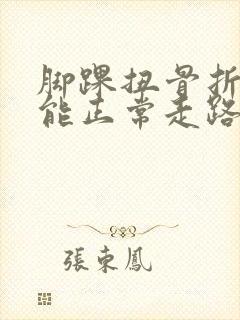 脚踝扭骨折
能正常走路
張東鳳